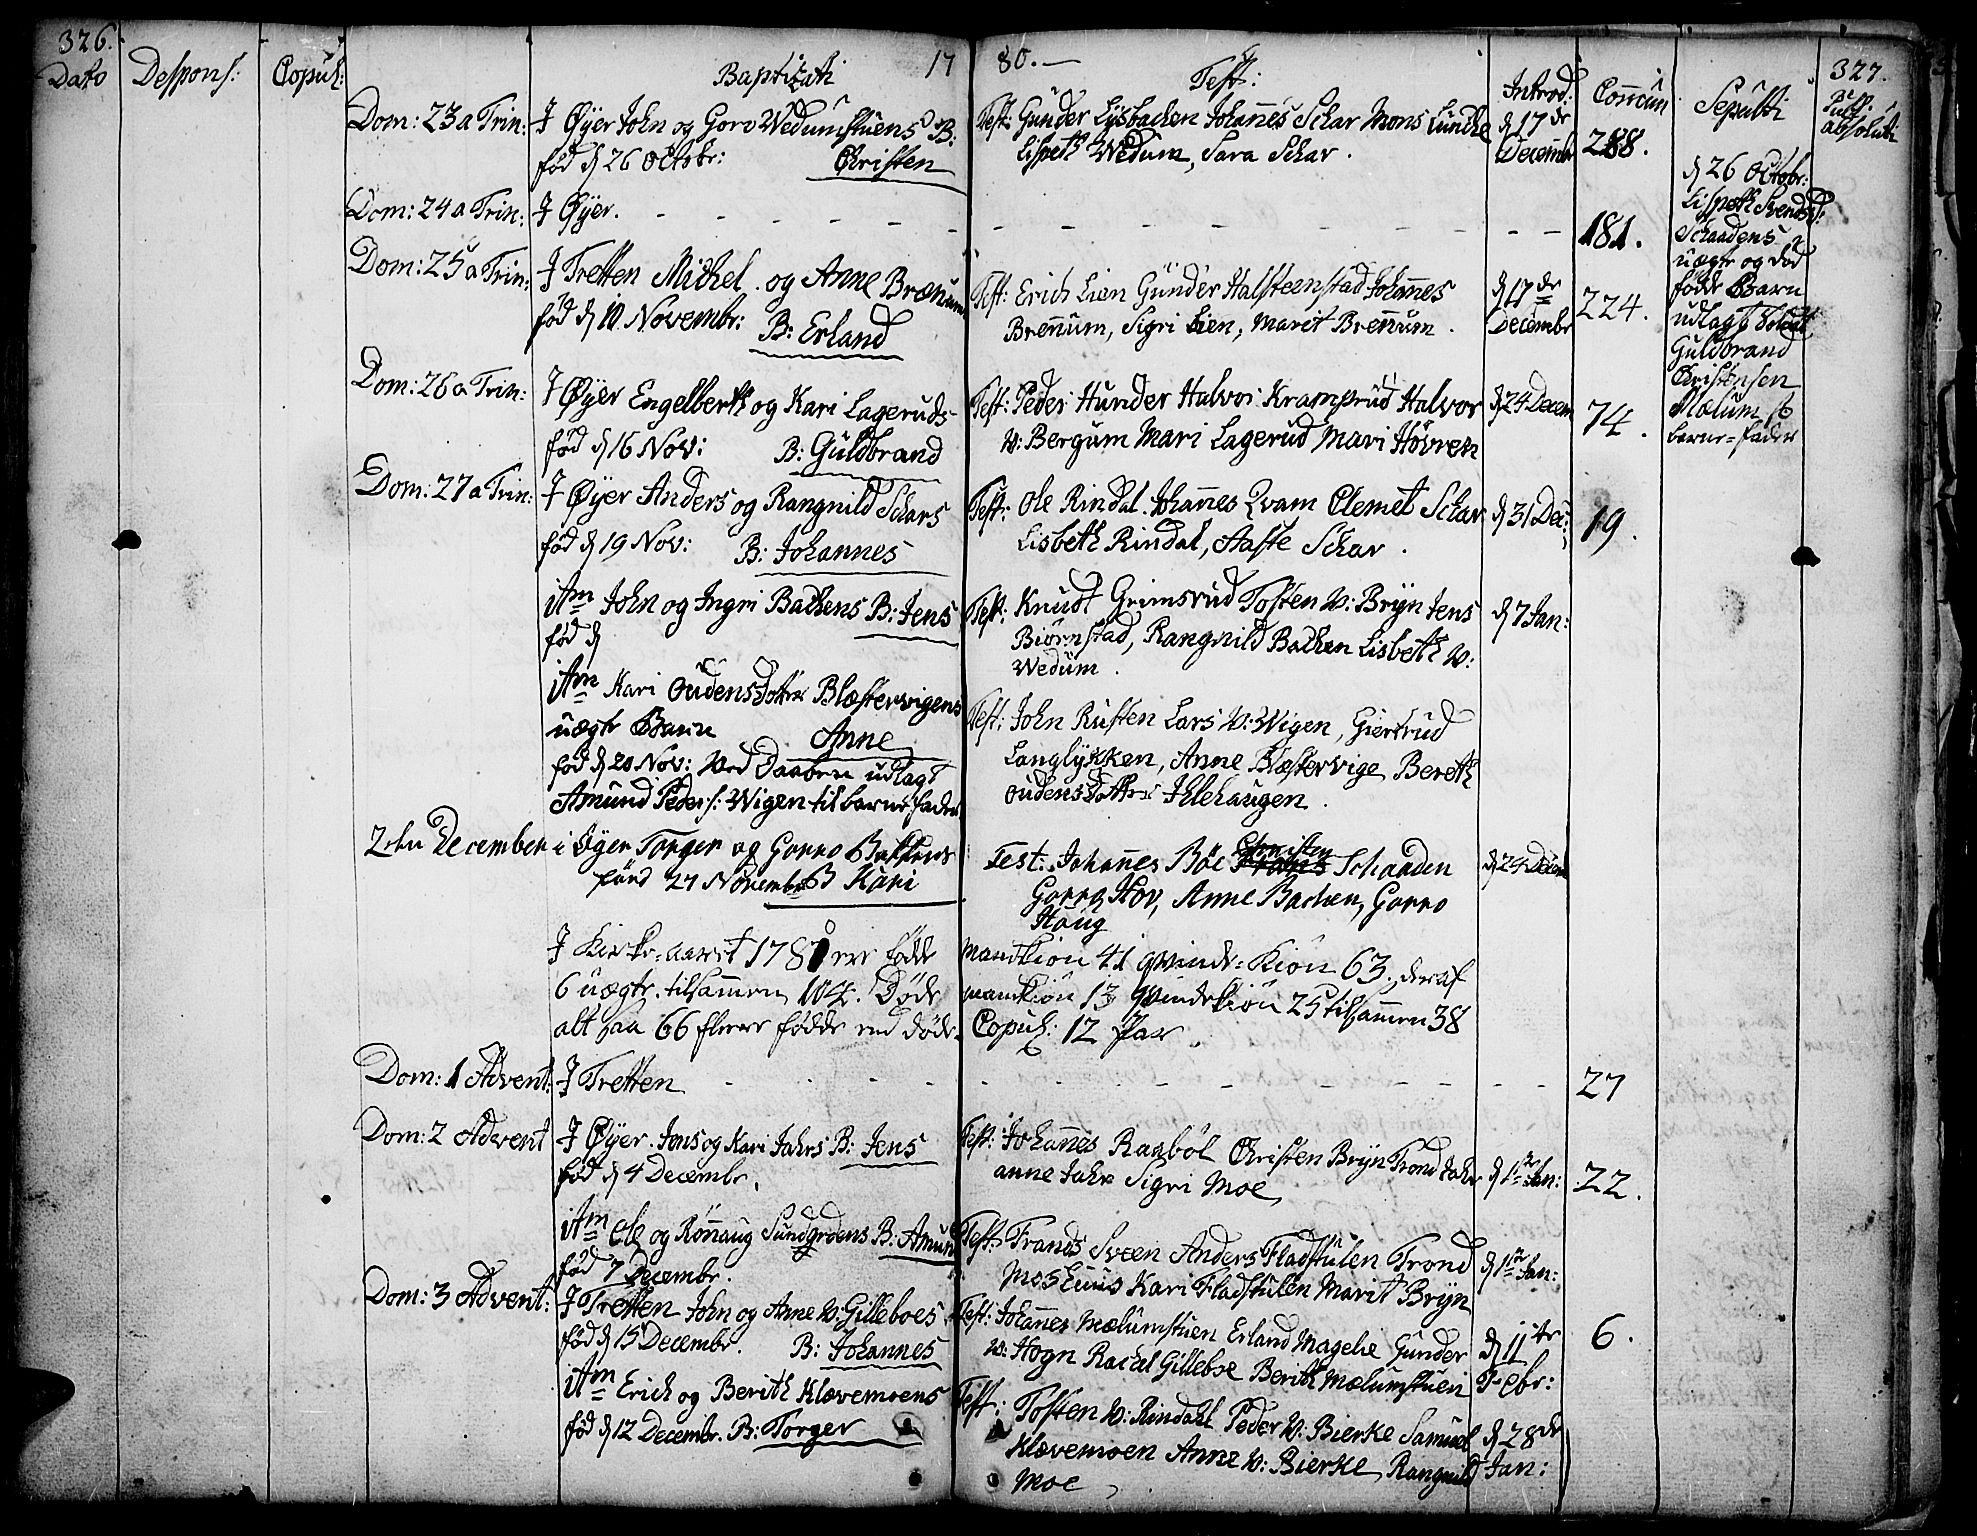 326.
Dato
Despons:
Copul:
Baptizati
17
80.
Test:
Introd:
Commun
Sepulti
327.
Publ.
absoluti
Dom: 23 a Trin: I Øyer John og Goro Wedumstuens B:
fød d 26 Octobr: Christen
Test: Gunder Lysbachen Johannes Schar Mons Lunche
Lisbeth Wedum, Sara Schar.
d 17de
Decembr
288.
d 26 Octobr:
Lisbeth Svends d:
Schaadens
uægte og død
fødde Barn
udlagt Soldat
Guldbrand
Christensen
Mælum til
barne-fader
Dom: 24 a Trin: I Øyer. - - - - - -
181.
Dom: 25 a Trin: I Tretten Michel og Anne Brænums
fød d 10 Novembr: B: Erland
Test: Erich Lien Gunder Halsteenstad Johannes
Brennum, Sigri Lien, Marit Brennum.
d 17de
Decembr
224.
Dom: 26 a Trin: I Øyer Engelberth og Kari Lageruds
fød d 16 Nov: B: Guldbrand
Test: Peder Hunder Halvor Kramprud Halvor
N: Bergum Mari Lagerud Mari Høvren
d 24 Decem
74.
Dom: 27 a Trin: I Øyer Anders og Rangnild Schars
fød d 19 Nov: B: Johannes
Test: Ole Rindal Johannes Qvam Clemet Schar
Lisbeth Rindal, Aaste Schar.
d 31 Dec:
19.
itm John og Ingri Bachens B: Jens
fød d
Test: Knudt Grimsrud Tosten N: Bryn Jens
Biørnstad, Rangnild Bachen Lisbeth N:
Wedum.
d 7 Jan:
itm Kari Oudensdotter Blæstervigens
uægte Barn Anne
fød d 20 Nov: Ved Daaben udlagt
Amund Peders: Wigen til barne fader
Test: John Rusten Lars N: Wigen, Giertrud
Langlykken, Anne Blæstervige, Bereth
Oudensdotter Ihlehaugen.
2den December i Øyer Torger og Gorro Bakkens
født 27 Novembr B Kari
Test: Johannes Böe Christen Schaaden
Gorro Hov, Anne Bachen, Gorro
Haug
d 24 Decem
I Kirke-aaret 1780 ere fødde
6 uægte. tilsammen 104. Døde
alt saa 66 fleere fødde end døde.
mandkiøn 41 qvinde-kiøn 63, deraf
mandkiøn 13 qvindekiøn 25 tilsammen 38
Copul: 12 Par.
Dom: 1 Advent: I Tretten - - - - - -
27
Dom: 2 Advent I Øyer Jens og Kari Jahrs B: Jens
fød d 4 Decembr.
Test: Johannes Raabøl Christen Bryn Trond Jahr
anne Jahr Sigri Moe
d 1ste Jan:
22.
itm Ole og Rønnaug Sundgrdens B: Amund
fød 7 Decembr.
Test: Trands Sveen Anders Fladstulen Trond
Moshuus Kari Fladstulen Marit Bryn
d 1ste Jan:
Dom: 3 Advent: I Tretten John og Anne N: Gilleboes
fød d 15 Decembr. B: Johannes
Test: Johannes Mælumstuen Erland Magelie Gunder
N: Hogn Rachel Gilleboe Berith Mælumstuen
d 11te
Febr:
6.
itm Erich og Berith Klævemoens
fød d 12 Decembr. B: Torger
Test: Tosten N: Rindahl Peder N: Bierke Samuel
Klævemoen Anne N: Bierke Rangnild
Moe
d 28de
Jan: